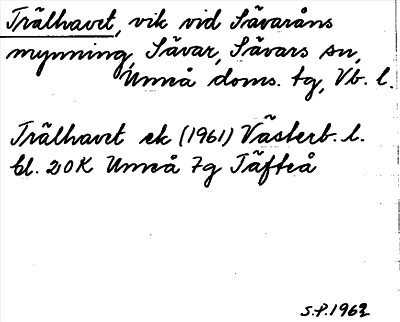 Trälhavet, vik vid Sävaråns
mynning, Sävar, Sävars sn,
Umeå doms. tg, Vb. l.
Trälhavet ek (1961) Västerb. l.
bl. 20K Umeå 7g Täfteå
S.P. 1962